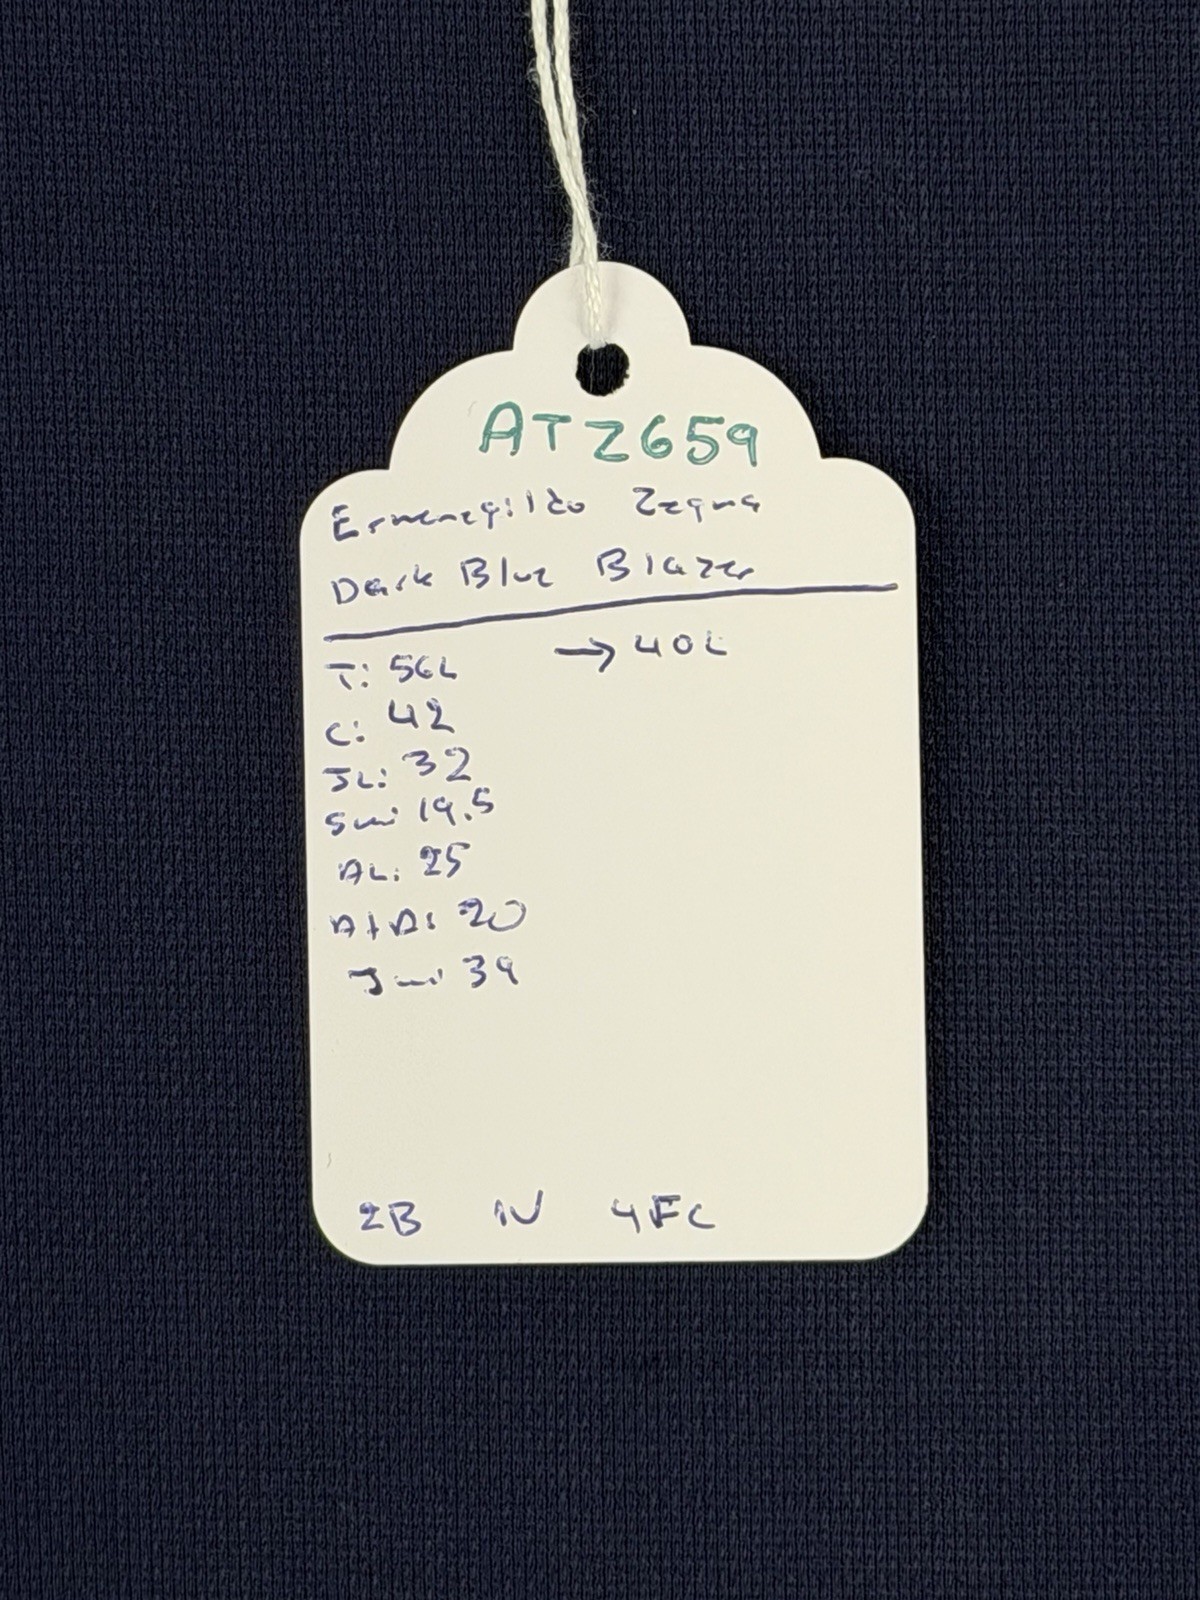 ATZ659
Ermenegildo Zegna
Dark Blue Blazer
T: 56L → 40L
C: 42
JL: 32
SW: 19.5
AL: 25
AtA: 20
JW: 39
2B 1V 4FC